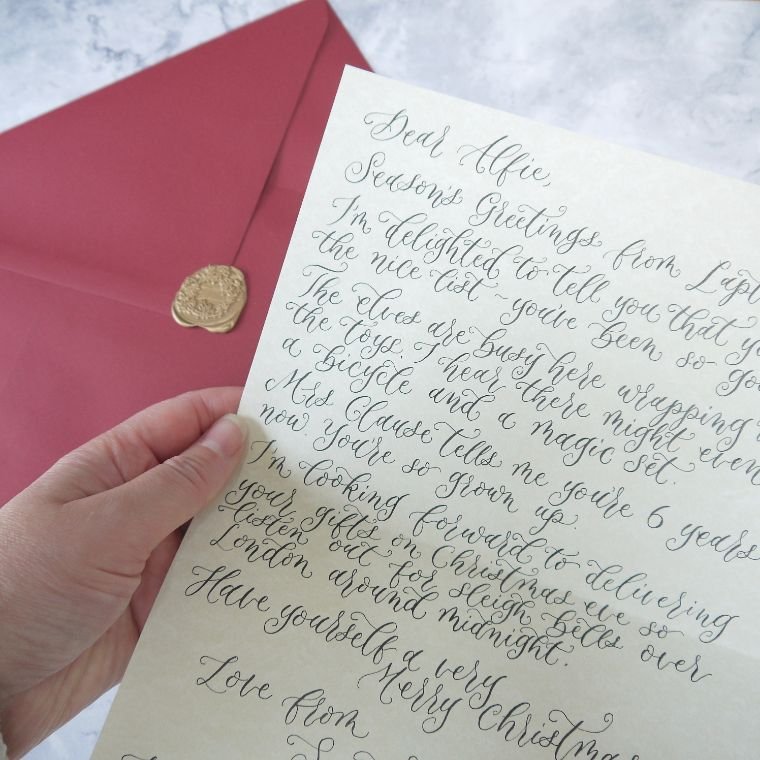 Dear Alfie,
Season's Greetings from Lapl
I'm delighted to tell you that yo
the nice list ~ you've been so goo
The elves are busy here wrapping
the toys. I hear there might even
a bicycle and a magic set.
Mrs Clause tells me you're 6 years
now. You're so grown up.
I'm looking forward to delivering
your gifts on Christmas eve so
listen out for sleigh bells over
London around midnight.
Have yourself a very
Merry Christmas
Love from